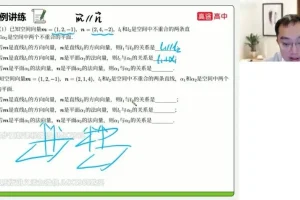 例讲练
m // n
高途 高中
1）已知空间向量m＝(1,2,−1)，n＝(2,4,−2)，l₁和l₂是空间中不重合的两条直
是空间中两个不重合的平面．
m是直线l₁的方向向量，n是直线l₂的方向向量，则l₁与l₂的关系是 l₁//l₂
m是直线l₁的方向向量，n是平面α₁的法向量，则l₁与α₁的关系是 l₁⊥α₁
m是平面α₁的法向量，n是平面α₂的法向量，则α₁与α₂的关系是
知空间向量m＝(1,2,−1)，n＝(2,1,4)，l₁和l₂是空间中不重合的两条直线，α₁和α₂是空间中两个
平面．
m是直线l₁的方向向量，n是直线l₂的方向向量，则l₁与l₂的关系是
m是直线l₁的方向向量，n是平面α₁的法向量，则l₁与α₁的关系是
m是平面α₁的法向量，n是平面α₂的法向量，则α₁与α₂的关系是